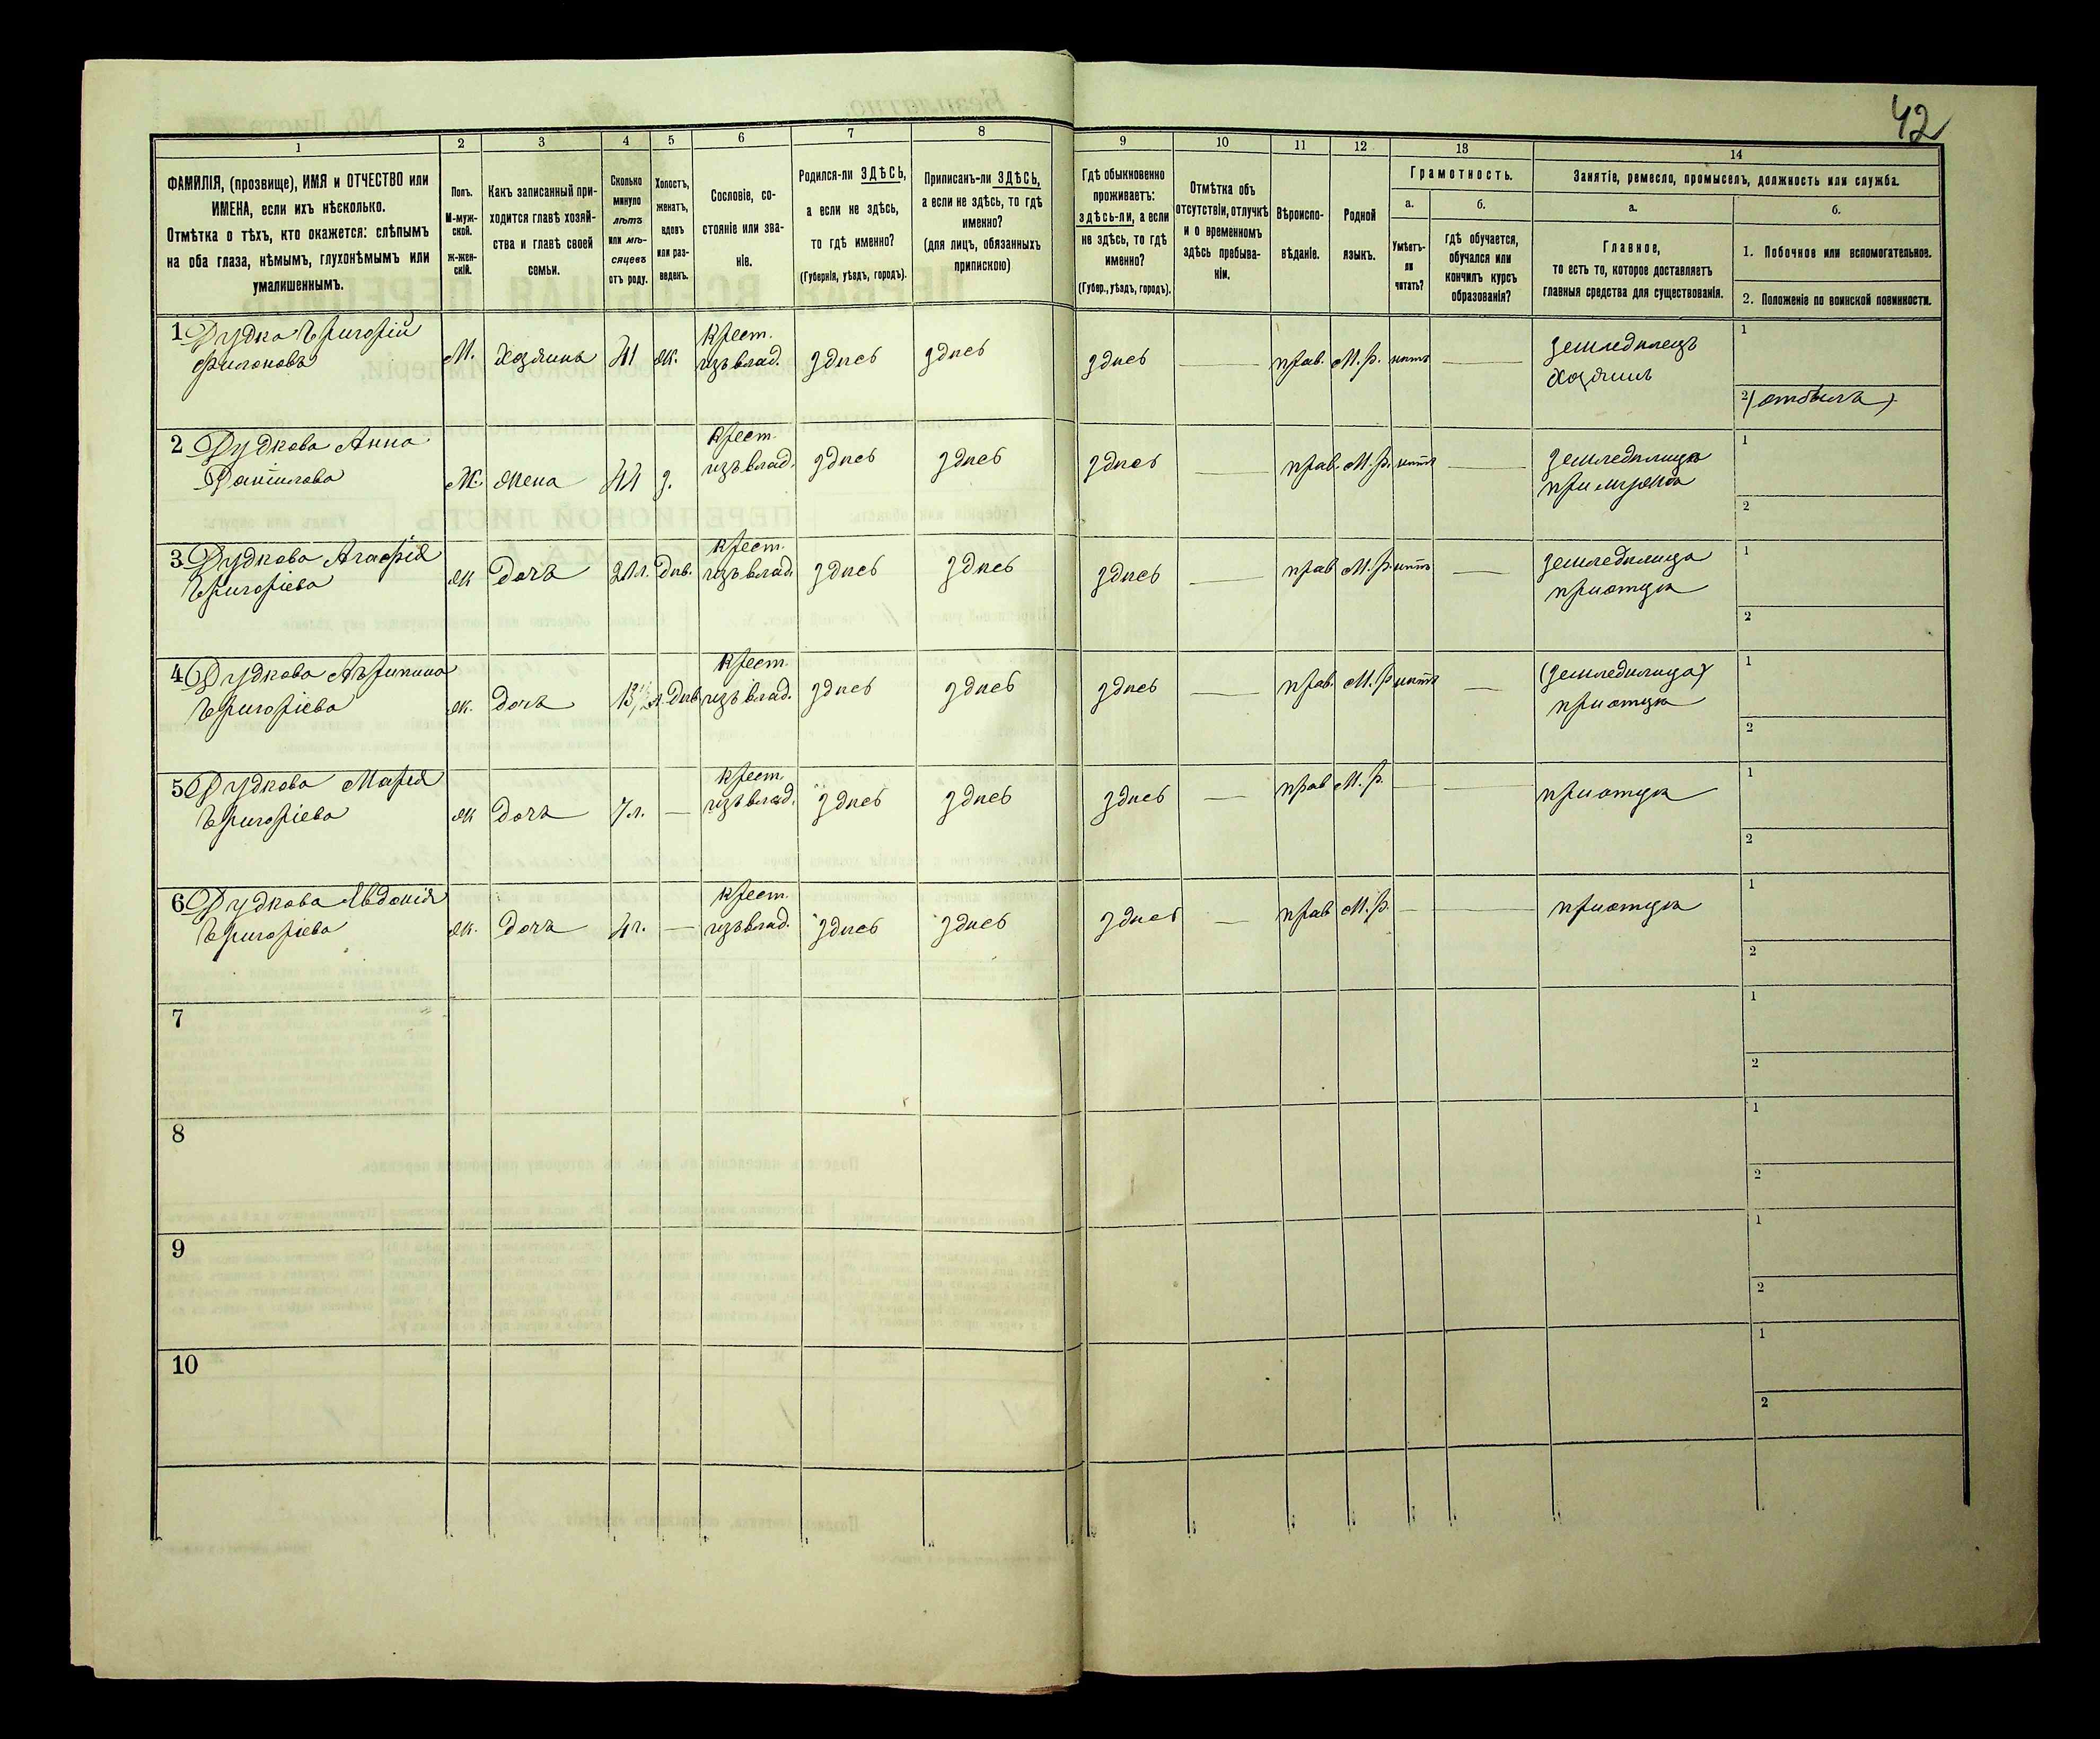 42
1 2 3 4 5 6 7 8 9 10 11 12 13 14
ФАМИЛІЯ, (прозвище), ИМЯ и ОТЧЕСТВО или
ИМЕНА, если ихъ нѣсколько.
Отмѣтка о тѣхъ, кто окажется: слѣпымъ
на оба глаза, нѣмымъ, глухонѣмымъ или
умалишеннымъ.
Полъ.
М-муж-
ской.
Ж-жен-
скій.
Какъ записанный при-
ходится главѣ хозяй-
ства и главѣ своей
семьи.
Сколько
минуло
лѣтъ
или мѣ-
сяцевъ
отъ роду.
Холостъ,
женатъ,
вдовъ
или раз-
веденъ.
Сословіе, со-
стояніе или зва-
ніе.
Родился-ли ЗДѢСЬ,
а если не здѣсь,
то гдѣ именно?
(Губернія, уѣздъ, городъ).
Приписанъ-ли ЗДѢСЬ,
а если не здѣсь, то гдѣ
именно?
(для лицъ, обязанныхъ
припискою)
Гдѣ обыкновенно
проживаетъ:
здѣсь-ли, а если
не здѣсь, то гдѣ
именно?
(Губер., уѣздъ, городъ).
Отмѣтка объ
отсутствіи, отлучкѣ
и о временномъ
здѣсь пребыва-
ніи.
Вѣроиспо-
вѣданіе.
Родной
языкъ.
Грамотность.
а.
Умѣетъ-
ли
читать?
б.
гдѣ обучается,
обучался или
кончилъ курсъ
образованія?
Занятіе, ремесло, промыселъ, должность или служба.
а.
Главное,
то есть то, которое доставляетъ
главныя средства для существованія.
б.
1. Побочное или вспомогательное.
2. Положеніе по воинской повинности.
1 Дудка Григорій
Филоновъ
М. Хозяинъ 41 ж. Крест. изъ влад. здѣсь здѣсь здѣсь — прав. М.р. нѣтъ — земледѣлецъ
хозяинъ
1
2 (отбылъ)
2 Дудкова Анна
Даніилова
Ж. жена 41 з. Крест. изъ влад. здѣсь здѣсь здѣсь — прав. М.р. нѣтъ — земледѣлица
при мужѣ
1
2
3 Дудкова Агафія
Григоріева
ж дочь л. дѣв. Крест. изъ влад. здѣсь здѣсь здѣсь — прав М.р. нѣтъ — земледѣлица
при отцѣ
1
2
4 Дудкова
Григоріева
ж. дочь л. дѣв. Крест. изъ влад. здѣсь здѣсь здѣсь — прав. М.р. нѣтъ — (земледѣлица)
при отцѣ
1
2
5 Дудкова Марія
Григоріева
ж дочь 7 л. — Крест. изъ влад. здѣсь здѣсь здѣсь — прав М.р. — — при отцѣ
1
2
6 Дудкова Евдокія
Григоріева
ж. дочь 4 г. — Крест. изъ влад. здѣсь здѣсь здѣсь — прав М.р. — — при отцѣ
1
2
7
1
2
8
1
2
9
1
2
10
1
2